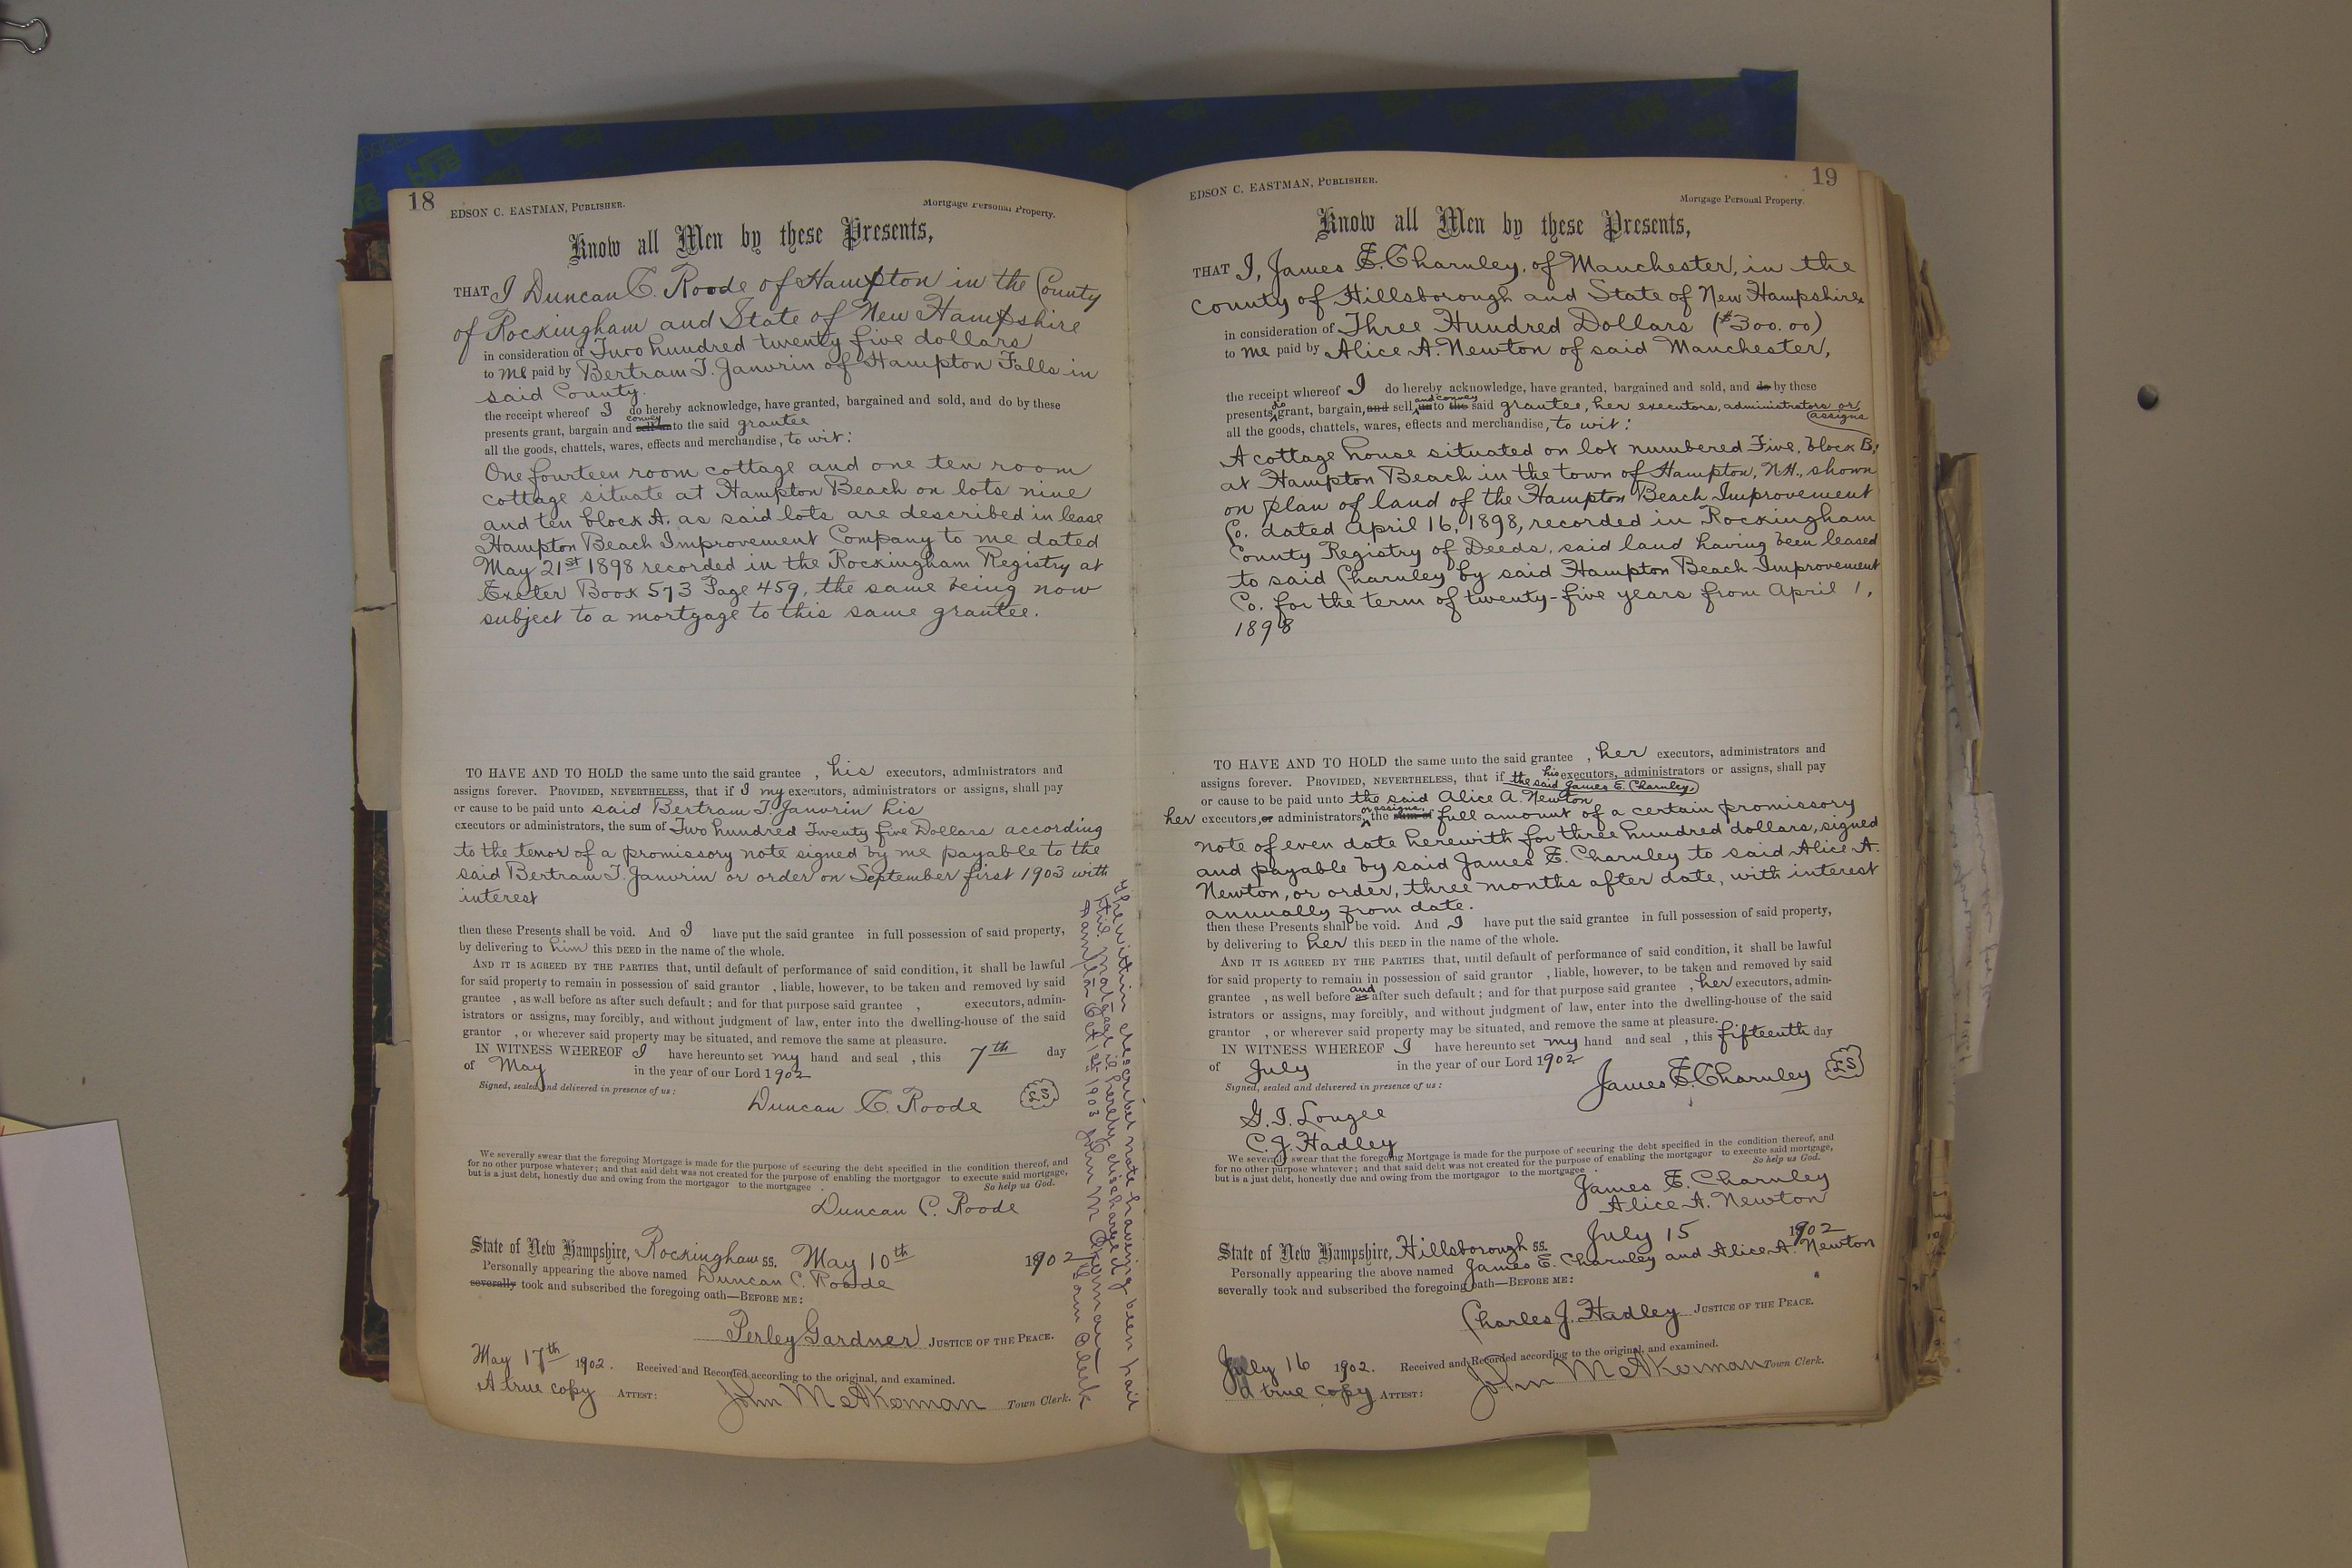 18
EDSON C. EASTMAN, PUBLISHER.
Mortgage Personal Property.
Know all Men by these Presents,
THAT I Duncan C. Roode of Hampton in the County
of Rockingham and State of New Hampshire
in consideration of Two hundred twenty five dollars
to me paid by Bertram T. Janvrin of Hampton Falls in
said County.
the receipt whereof I do hereby acknowledge, have granted, bargained and sold, and do by these
convey
presents grant, bargain and sell unto the said grantee
all the goods, chattels, wares, effects and merchandise, to wit:
One fourteen room cottage and one ten room
cottage situate at Hampton Beach on lots nine
and ten block A. as said lots are described in lease
Hampton Beach Improvement Company to me dated
May 21st 1898 recorded in the Rockingham Registry at
Exeter Book 573 Page 459, the same being now
subject to a mortgage to this same grantee.
TO HAVE AND TO HOLD the same unto the said grantee , his executors, administrators and
assigns forever. PROVIDED, NEVERTHELESS, that if I my executors, administrators or assigns, shall pay
or cause to be paid unto said Bertram T. Janvrin his
executors or administrators, the sum of Two hundred Twenty five Dollars according
to the tenor of a promissory note signed by me payable to the
said Bertram T. Janvrin or order on September first 1903 with
interest
then these Presents shall be void. And I have put the said grantee in full possession of said property,
by delivering to him this DEED in the name of the whole.
AND IT IS AGREED BY THE PARTIES that, until default of performance of said condition, it shall be lawful
for said property to remain in possession of said grantor , liable, however, to be taken and removed by said
grantee , as well before as after such default; and for that purpose said grantee , executors, admin-
istrators or assigns, may forcibly, and without judgment of law, enter into the dwelling-house of the said
grantor , or wherever said property may be situated, and remove the same at pleasure.
IN WITNESS WHEREOF I have hereunto set my hand and seal , this 7th day
of May in the year of our Lord 1902
Signed, sealed and delivered in presence of us:
Duncan C. Roode LS
We severally swear that the foregoing Mortgage is made for the purpose of securing the debt specified in the condition thereof, and
for no other purpose whatever; and that said debt was not created for the purpose of enabling the mortgagor to execute said mortgage,
but is a just debt, honestly due and owing from the mortgagor to the mortgagee . So help us God.
Duncan C. Roode
State of New Hampshire, Rockingham ss. May 10th 1902
Personally appearing the above named Duncan C. Roode
severally took and subscribed the foregoing oath—BEFORE ME:
Perley Gardner JUSTICE OF THE PEACE.
May 17th 1902. Received and Recorded according to the original, and examined.
A true copy ATTEST: John M Akerman Town Clerk.
The within described note having been paid
this Mortgage is hereby discharged
Hampton Oct 1st 1903 John M Akerman Town Clerk
19
EDSON C. EASTMAN, PUBLISHER.
Mortgage Personal Property.
Know all Men by these Presents,
THAT I, James E. Charnley, of Manchester, in the
County of Hillsborough and State of New Hampshire
in consideration of Three Hundred Dollars ($300.00)
to me paid by Alice A. Newton of said Manchester,
the receipt whereof I do hereby acknowledge, have granted, bargained and sold, and do by these
do and convey
presents grant, bargain, and sell unto the said grantee, her executors, administrators or
assigns
all the goods, chattels, wares, effects and merchandise, to wit:
A cottage house situated on lot numbered Five, block B,
at Hampton Beach in the town of Hampton, N.H., shown
on plan of land of the Hampton Beach Improvement
Co. dated April 16, 1898, recorded in Rockingham
County Registry of Deeds, said land having been leased
to said Charnley by said Hampton Beach Improvement
Co. for the term of twenty-five years from April 1,
1898
TO HAVE AND TO HOLD the same unto the said grantee , her executors, administrators and
assigns forever. PROVIDED, NEVERTHELESS, that if his executors, administrators or assigns, shall pay
the said James E. Charnley,
or cause to be paid unto the said Alice A. Newton
or assigns,
her executors, or administrators, the sum of full amount of a certain promissory
note of even date herewith for three hundred dollars, signed
and payable by said James E. Charnley to said Alice A.
Newton, or order, three months after date, with interest
annually from date.
then these Presents shall be void. And I have put the said grantee in full possession of said property,
by delivering to her this DEED in the name of the whole.
AND IT IS AGREED BY THE PARTIES that, until default of performance of said condition, it shall be lawful
for said property to remain in possession of said grantor , liable, however, to be taken and removed by said
and
grantee , as well before as after such default; and for that purpose said grantee , her executors, admin-
istrators or assigns, may forcibly, and without judgment of law, enter into the dwelling-house of the said
grantor , or wherever said property may be situated, and remove the same at pleasure.
IN WITNESS WHEREOF I have hereunto set my hand and seal , this fifteenth day
of July in the year of our Lord 1902
Signed, sealed and delivered in presence of us:
James E. Charnley LS
G. I. Lougee
C. J. Hadley
We severally swear that the foregoing Mortgage is made for the purpose of securing the debt specified in the condition thereof, and
for no other purpose whatever; and that said debt was not created for the purpose of enabling the mortgagor to execute said mortgage,
but is a just debt, honestly due and owing from the mortgagor to the mortgagee . So help us God.
James E. Charnley
Alice A. Newton
State of New Hampshire, Hillsborough ss. July 15 1902
Personally appearing the above named James E. Charnley and Alice A. Newton
severally took and subscribed the foregoing oath—BEFORE ME:
Charles J. Hadley JUSTICE OF THE PEACE.
July 16 1902. Received and Recorded according to the original, and examined.
A true copy ATTEST: John M Akerman Town Clerk.